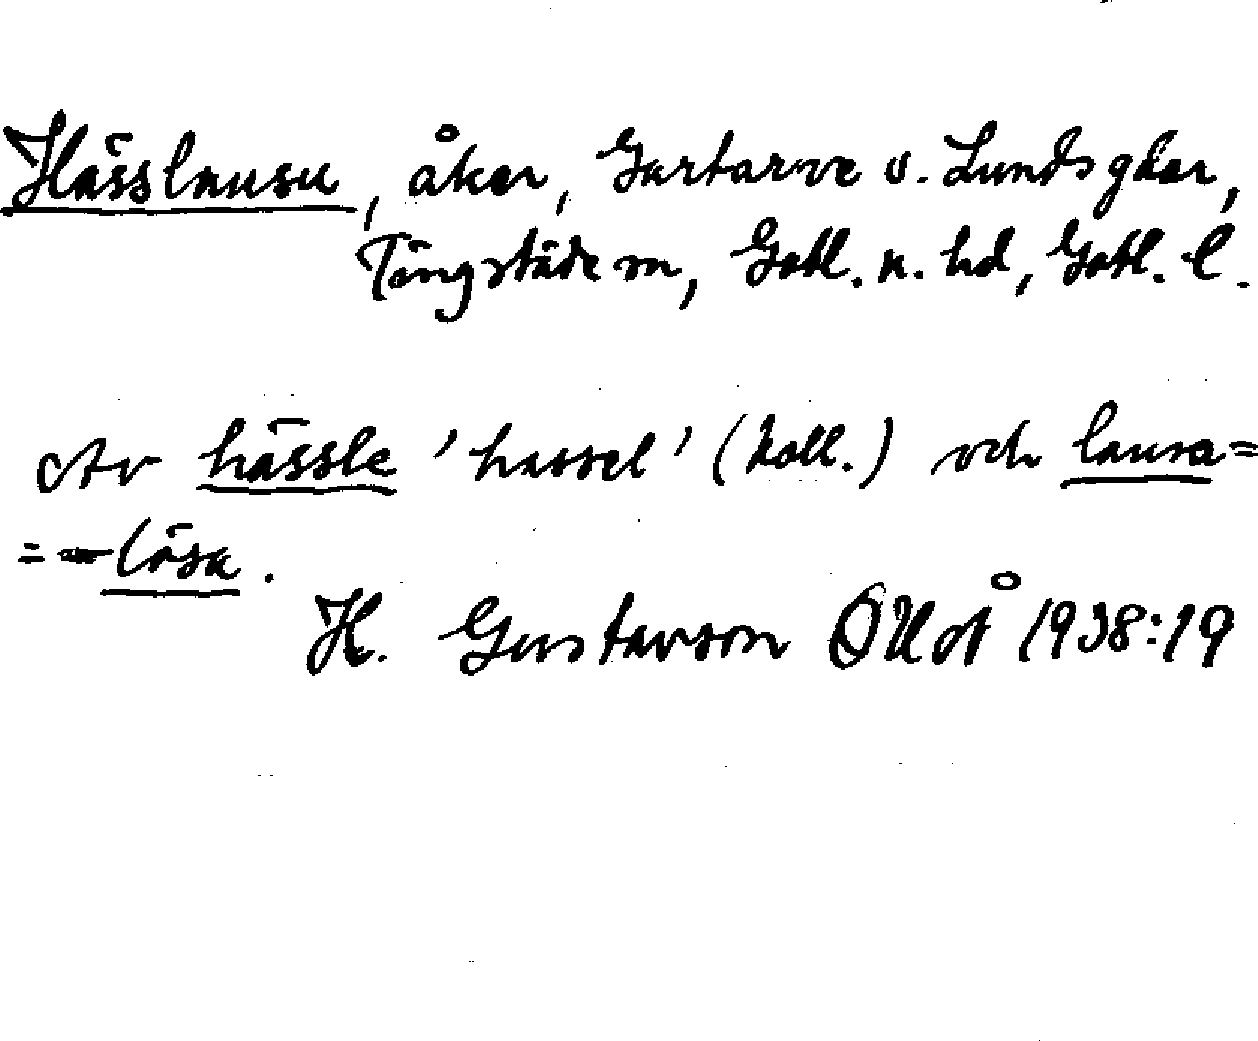 Hässlausu, åker, Gartarve o. Lunds gdar,
Tingstäde sn, Gotl. n. hd, Gotl. l.
Av hässle 'hassel' (koll.) och lausa =
= -lösa.
H. Gustavson OUoÅ 1938:19